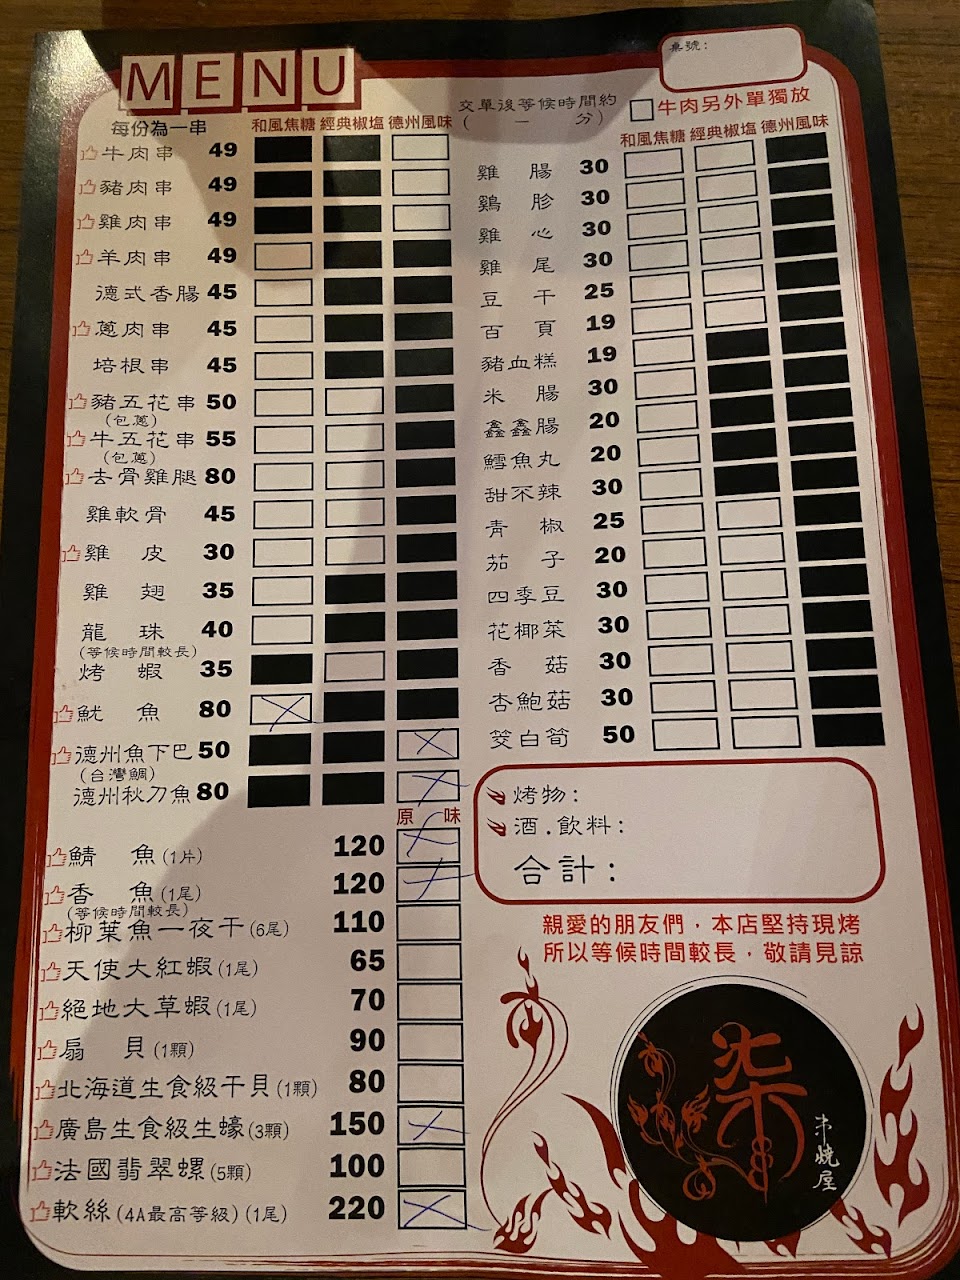 MENU
每份為一串
和風焦糖 經典椒塩 德州風味
牛肉串 49
豬肉串 49
雞肉串 49
羊肉串 49
德式香腸 45
蔥肉串 45
培根串 45
豬五花串 50
(包蔥)
牛五花串 55
(包蔥)
去骨雞腿 80
雞軟骨 45
雞皮 30
雞翅 35
龍珠 40
(等候時間較長)
烤蝦 35
魷魚 80
德州魚下巴 50
(台灣鯛)
德州秋刀魚 80
原味
鯖魚(1片) 120
香魚(1尾) 120
(等候時間較長)
柳葉魚一夜干(6尾) 110
天使大紅蝦(1尾) 65
絕地大草蝦(1尾) 70
扇貝(1顆) 90
北海道生食級干貝(1顆) 80
廣島生食級生蠔(3顆) 150
法國翡翠螺(5顆) 100
軟絲(4A最高等級)(1尾) 220
桌號:
交單後等候時間約
( 一 分)
牛肉另外單獨放
和風焦糖 經典椒塩 德州風味
雞腸 30
鷄胗 30
雞心 30
雞尾 30
豆干 25
百頁 19
豬血糕 19
米腸 30
鑫鑫腸 20
鱈魚丸 20
甜不辣 30
青椒 25
茄子 20
四季豆 30
花椰菜 30
香菇 30
杏鮑菇 30
筊白筍 50
烤物:
酒.飲料:
合計:
親愛的朋友們，本店堅持現烤
所以等候時間較長，敬請見諒
柒
串燒屋